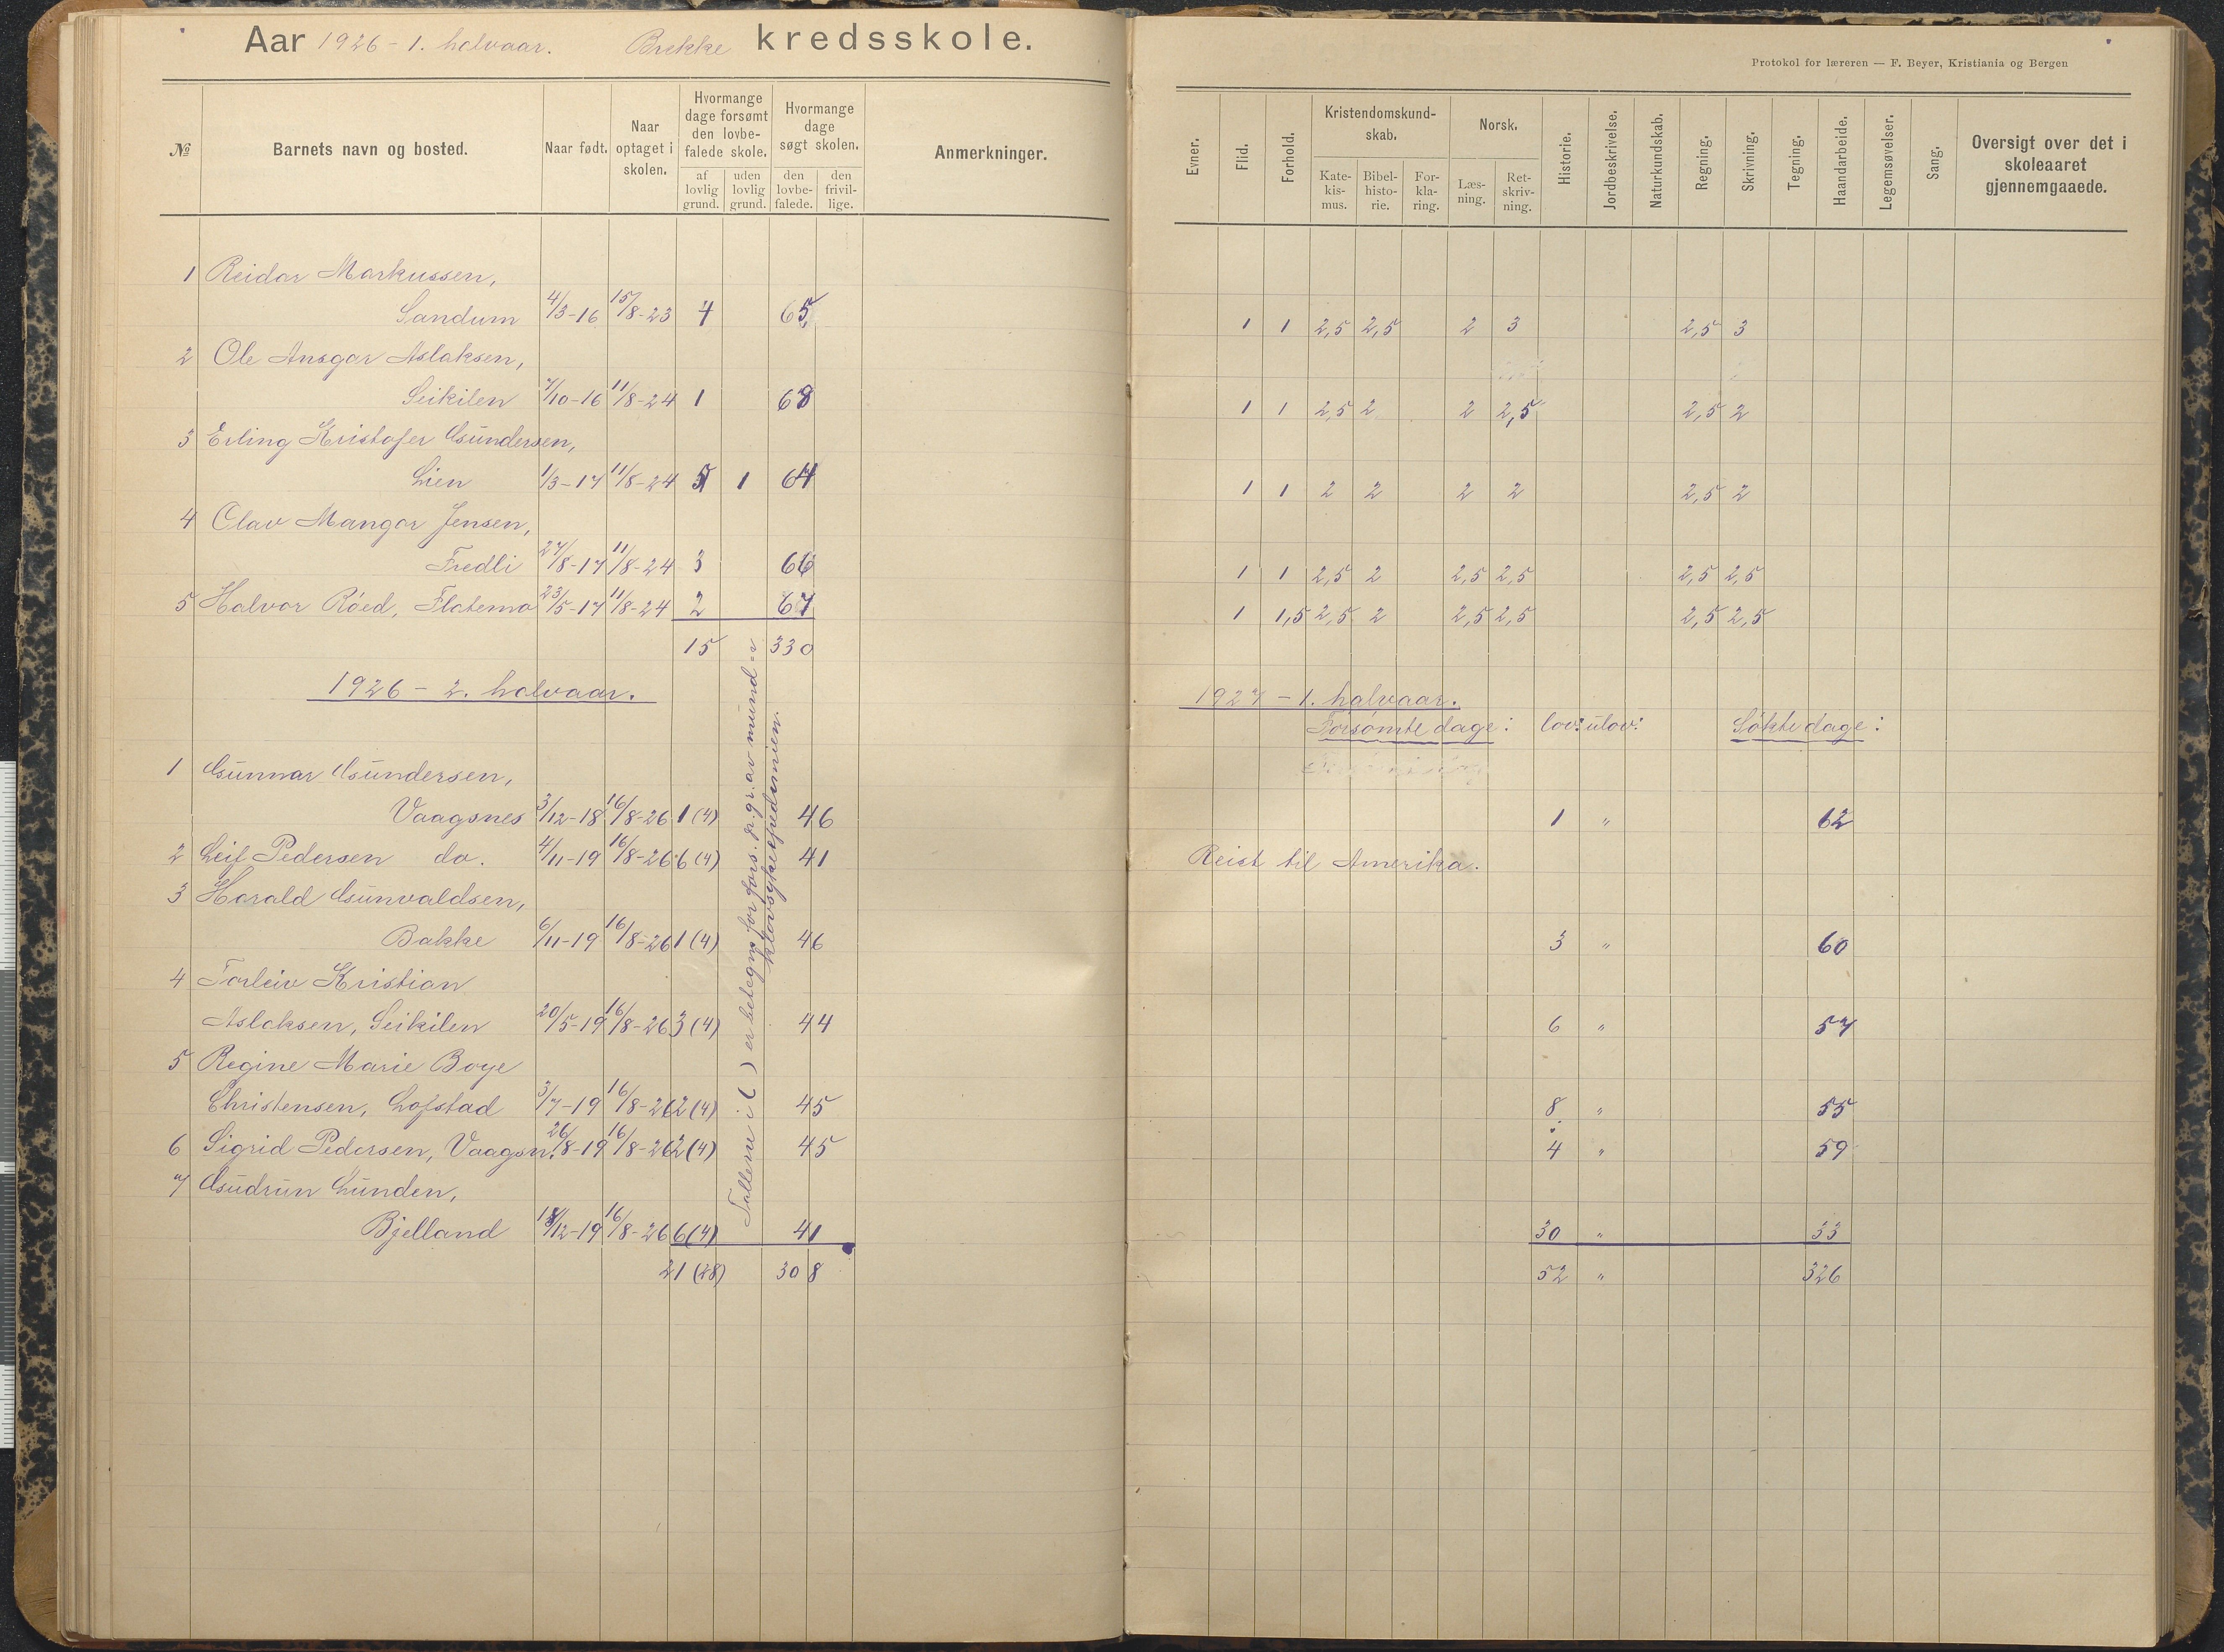 Aar 1926 - 1. halvaar. Brekke kredsskole.
№ Barnets navn og bosted. Naar født. Naar optaget i skolen. Hvormange dage forsømt den lovbefalede skole. Hvormange dage søgt skolen. Anmerkninger.
af lovlig grund. uden lovlig grund. den lovbefalede. den frivillige.
1 Reidar Markussen,
Sandum 4/3-16 15/8-23 4 65
2 Ole Ansgar Aslaksen,
Seikilen 7/10-16 11/8-24 1 68
3 Erling Kristofer Gundersen,
Lien 1/3-17 11/8-24 5 1 64
4 Olav Mangor Jensen,
Fredli 27/8-17 11/8-24 3 66
5 Halvor Röed, Flatemo 23/5-17 11/8-24 2 67
15 330
1926 - 2. halvaar.
1 Gunnar Gundersen,
Vaagsnes 3/12-18 16/8-26 1 (4) 46
2 Leif Pedersen do. 4/11-19 16/8-26 6 (4) 41
3 Harald Gunvaldsen,
Bakke 6/11-19 16/8-26 1 (4) 46
4 Torleiv Kristian
Aslaksen, Seikilen 20/5-19 16/8-26 3 (4) 44
5 Regine Marie Boye
Christensen, Lofstad 3/7-19 16/8-26 2 (4) 45
6 Sigrid Pedersen, Vaagsn. 26/8-19 16/8-26 2 (4) 45
7 Gudrun Lunden,
Bjelland 18/12-19 16/8-26 6 (4) 41
21 (28) 308
Tallene i ( ) er betegn. for fors. p. gr. av mund- &
klovsykeepedemien.
Protokol for læreren — F. Beyer, Kristiania og Bergen
Evner. Flid. Forhold. Kristendomskundskab. Norsk. Historie. Jordbeskrivelse. Naturkundskab. Regning. Skrivning. Tegning. Haandarbeide. Legemsøvelser. Sang. Oversigt over det i skoleaaret gjennemgaaede.
Katekismus. Bibelhistorie. Forklaring. Læsning. Retskrivning.
1 1 2,5 2,5 2 3 2,5 3
1 1 2,5 2 2 2,5 2,5 2
1 1 2 2 2 2 2,5 2
1 1 2,5 2 2,5 2,5 2,5 2,5
1 1,5 2,5 2 2,5 2,5 2,5 2,5
1927 - 1. halvaar.
Forsömte dage: lov: ulov: Sökte dage:
1 " 62
Reist til Amerika.
3 " 60
6 " 57
8 " 55
4 " 59
30 " 33
52 " 326